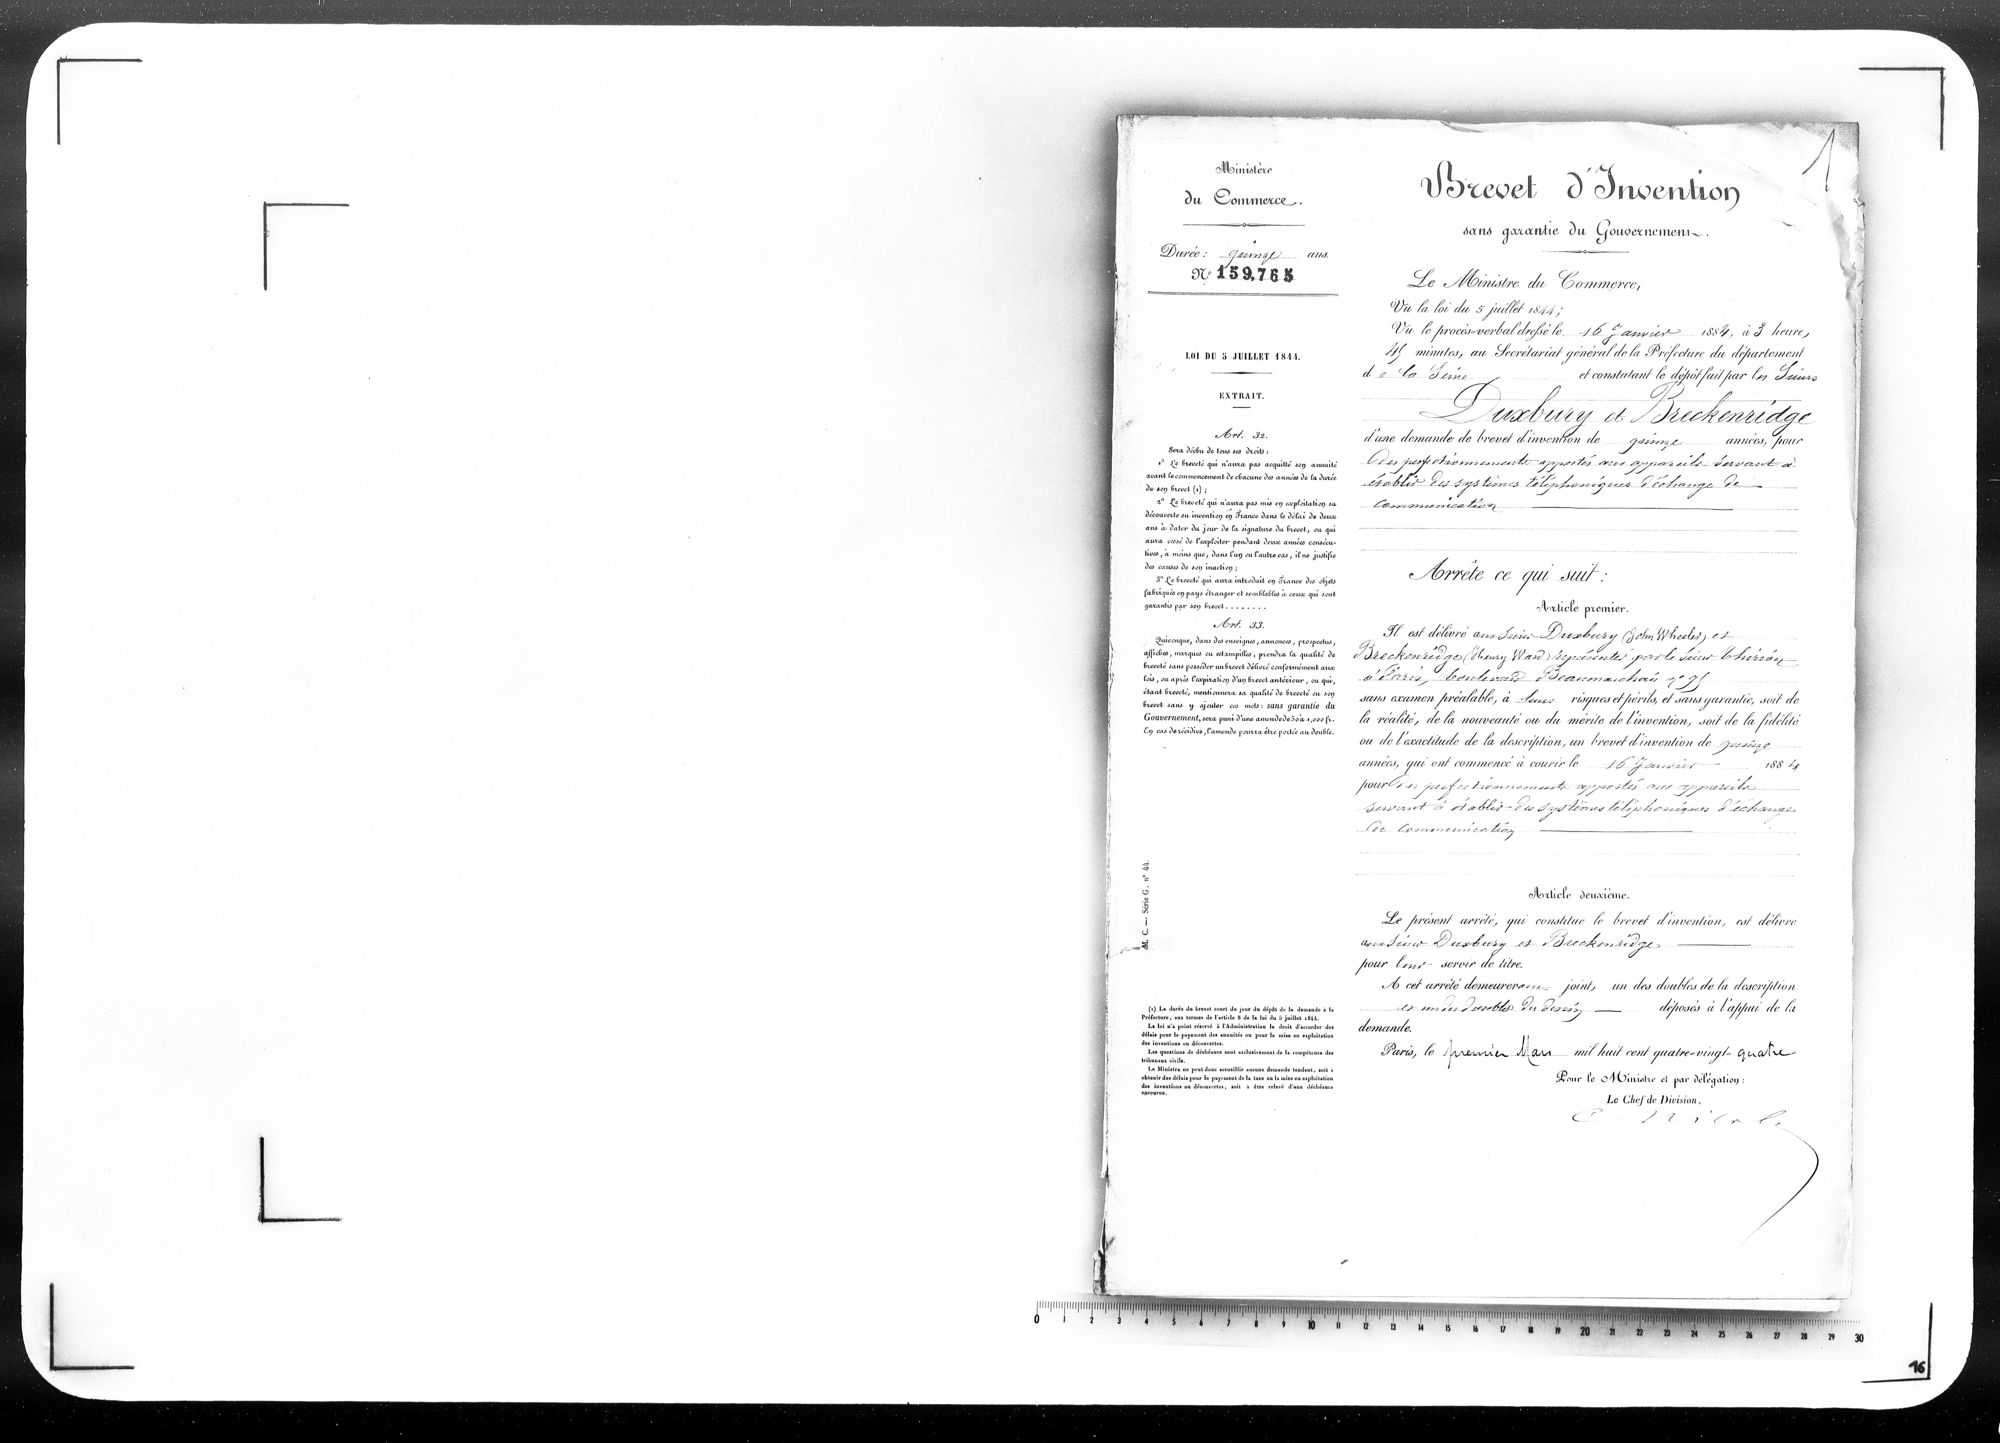 Ministère
du Commerce.
Durée : quinze ans.
N° 159,765
LOI DU 5 JUILLET 1844.
EXTRAIT.
Art. 32.
Sera déchu de tous ses droits :
1° Le breveté qui n'aura pas acquitté son annuité
avant le commencement de chacune des années de la durée
de son brevet (1) ;
2° Le breveté qui n'aura pas mis en exploitation sa
découverte ou invention en France dans le délai de deux
ans à dater du jour de la signature du brevet, ou qui
aura cessé de l'exploiter pendant deux années consécu-
tives, à moins que, dans l'un ou l'autre cas, il ne justifie
des causes de son inaction ;
3° Le breveté qui aura introduit en France des objets
fabriqués en pays étranger et semblables à ceux qui sont
garantis par son brevet ........
Art. 33.
Quiconque, dans des enseignes, annonces, prospectus,
affiches, marques ou estampilles, prendra la qualité de
breveté sans posséder un brevet délivré conformément aux
lois, ou après l'expiration d'un brevet antérieur, ou qui,
étant breveté, mentionnera sa qualité de breveté ou son
brevet sans y ajouter ces mots : sans garantie du
Gouvernement, sera puni d'une amende de 50 à 1,000 fr.
En cas de récidive, l'amende pourra être portée au double.
M. C. — Série G. n° 44.
(1) La durée du brevet court du jour du dépôt de la demande à la
Préfecture, aux termes de l'article 8 de la loi du 5 juillet 1844.
La loi n'a point réservé à l'Administration le droit d'accorder des
délais pour le payement des annuités ou pour la mise en exploitation
des inventions ou découvertes.
Les questions de déchéance sont exclusivement de la compétence des
tribunaux civils.
Le Ministre ne peut donc accueillir aucune demande tendant, soit à
obtenir des délais pour le payement de la taxe ou la mise en exploitation
des inventions ou découvertes, soit à être relevé d'une déchéance
encourue.
1
Brevet d'Invention
sans garantie du Gouvernement.
Le Ministre du Commerce,
Vu la loi du 5 juillet 1844 ;
Vu le procès-verbal dressé le 16 Janvier 1884, à 3 heures
45 minutes, au Secrétariat général de la Préfecture du département
de la Seine et constatant le dépôt fait par les Sieurs
Duxbury et Breckenridge
d'une demande de brevet d'invention de quinze années, pour
des perfectionnements apportés aux appareils servant à
établir des systèmes téléphoniques d'échange de
communication
Arrête ce qui suit :
Article premier.
Il est délivré aux Sieurs Duxbury (John Wheeler) et
Breckenridge (Henry Ward) représentés par le Sieur Thirion
à Paris, boulevard Beaumarchais n° 95
sans examen préalable, à leurs risques et périls, et sans garantie, soit de
la réalité, de la nouveauté ou du mérite de l'invention, soit de la fidélité
ou de l'exactitude de la description, un brevet d'invention de quinze
années, qui ont commencé à courir le 16 Janvier 1884
pour des perfectionnements apportés aux appareils
servant à établir des systèmes téléphoniques d'échange
de communication
Article deuxième.
Le présent arrêté, qui constitue le brevet d'invention, est délivré
aux Sieurs Duxbury et Breckenridge
pour leur servir de titre.
A cet arrêté demeureront joints un des doubles de la description
et un des doubles du dessin déposés à l'appui de la
demande.
Paris, le premier Mars mil huit cent quatre-vingt-quatre
Pour le Ministre et par délégation :
Le Chef de Division,
0 1 2 3 4 5 6 7 8 9 10 11 12 13 14 15 16 17 18 19 20 21 22 23 24 25 26 27 28 29 30
16